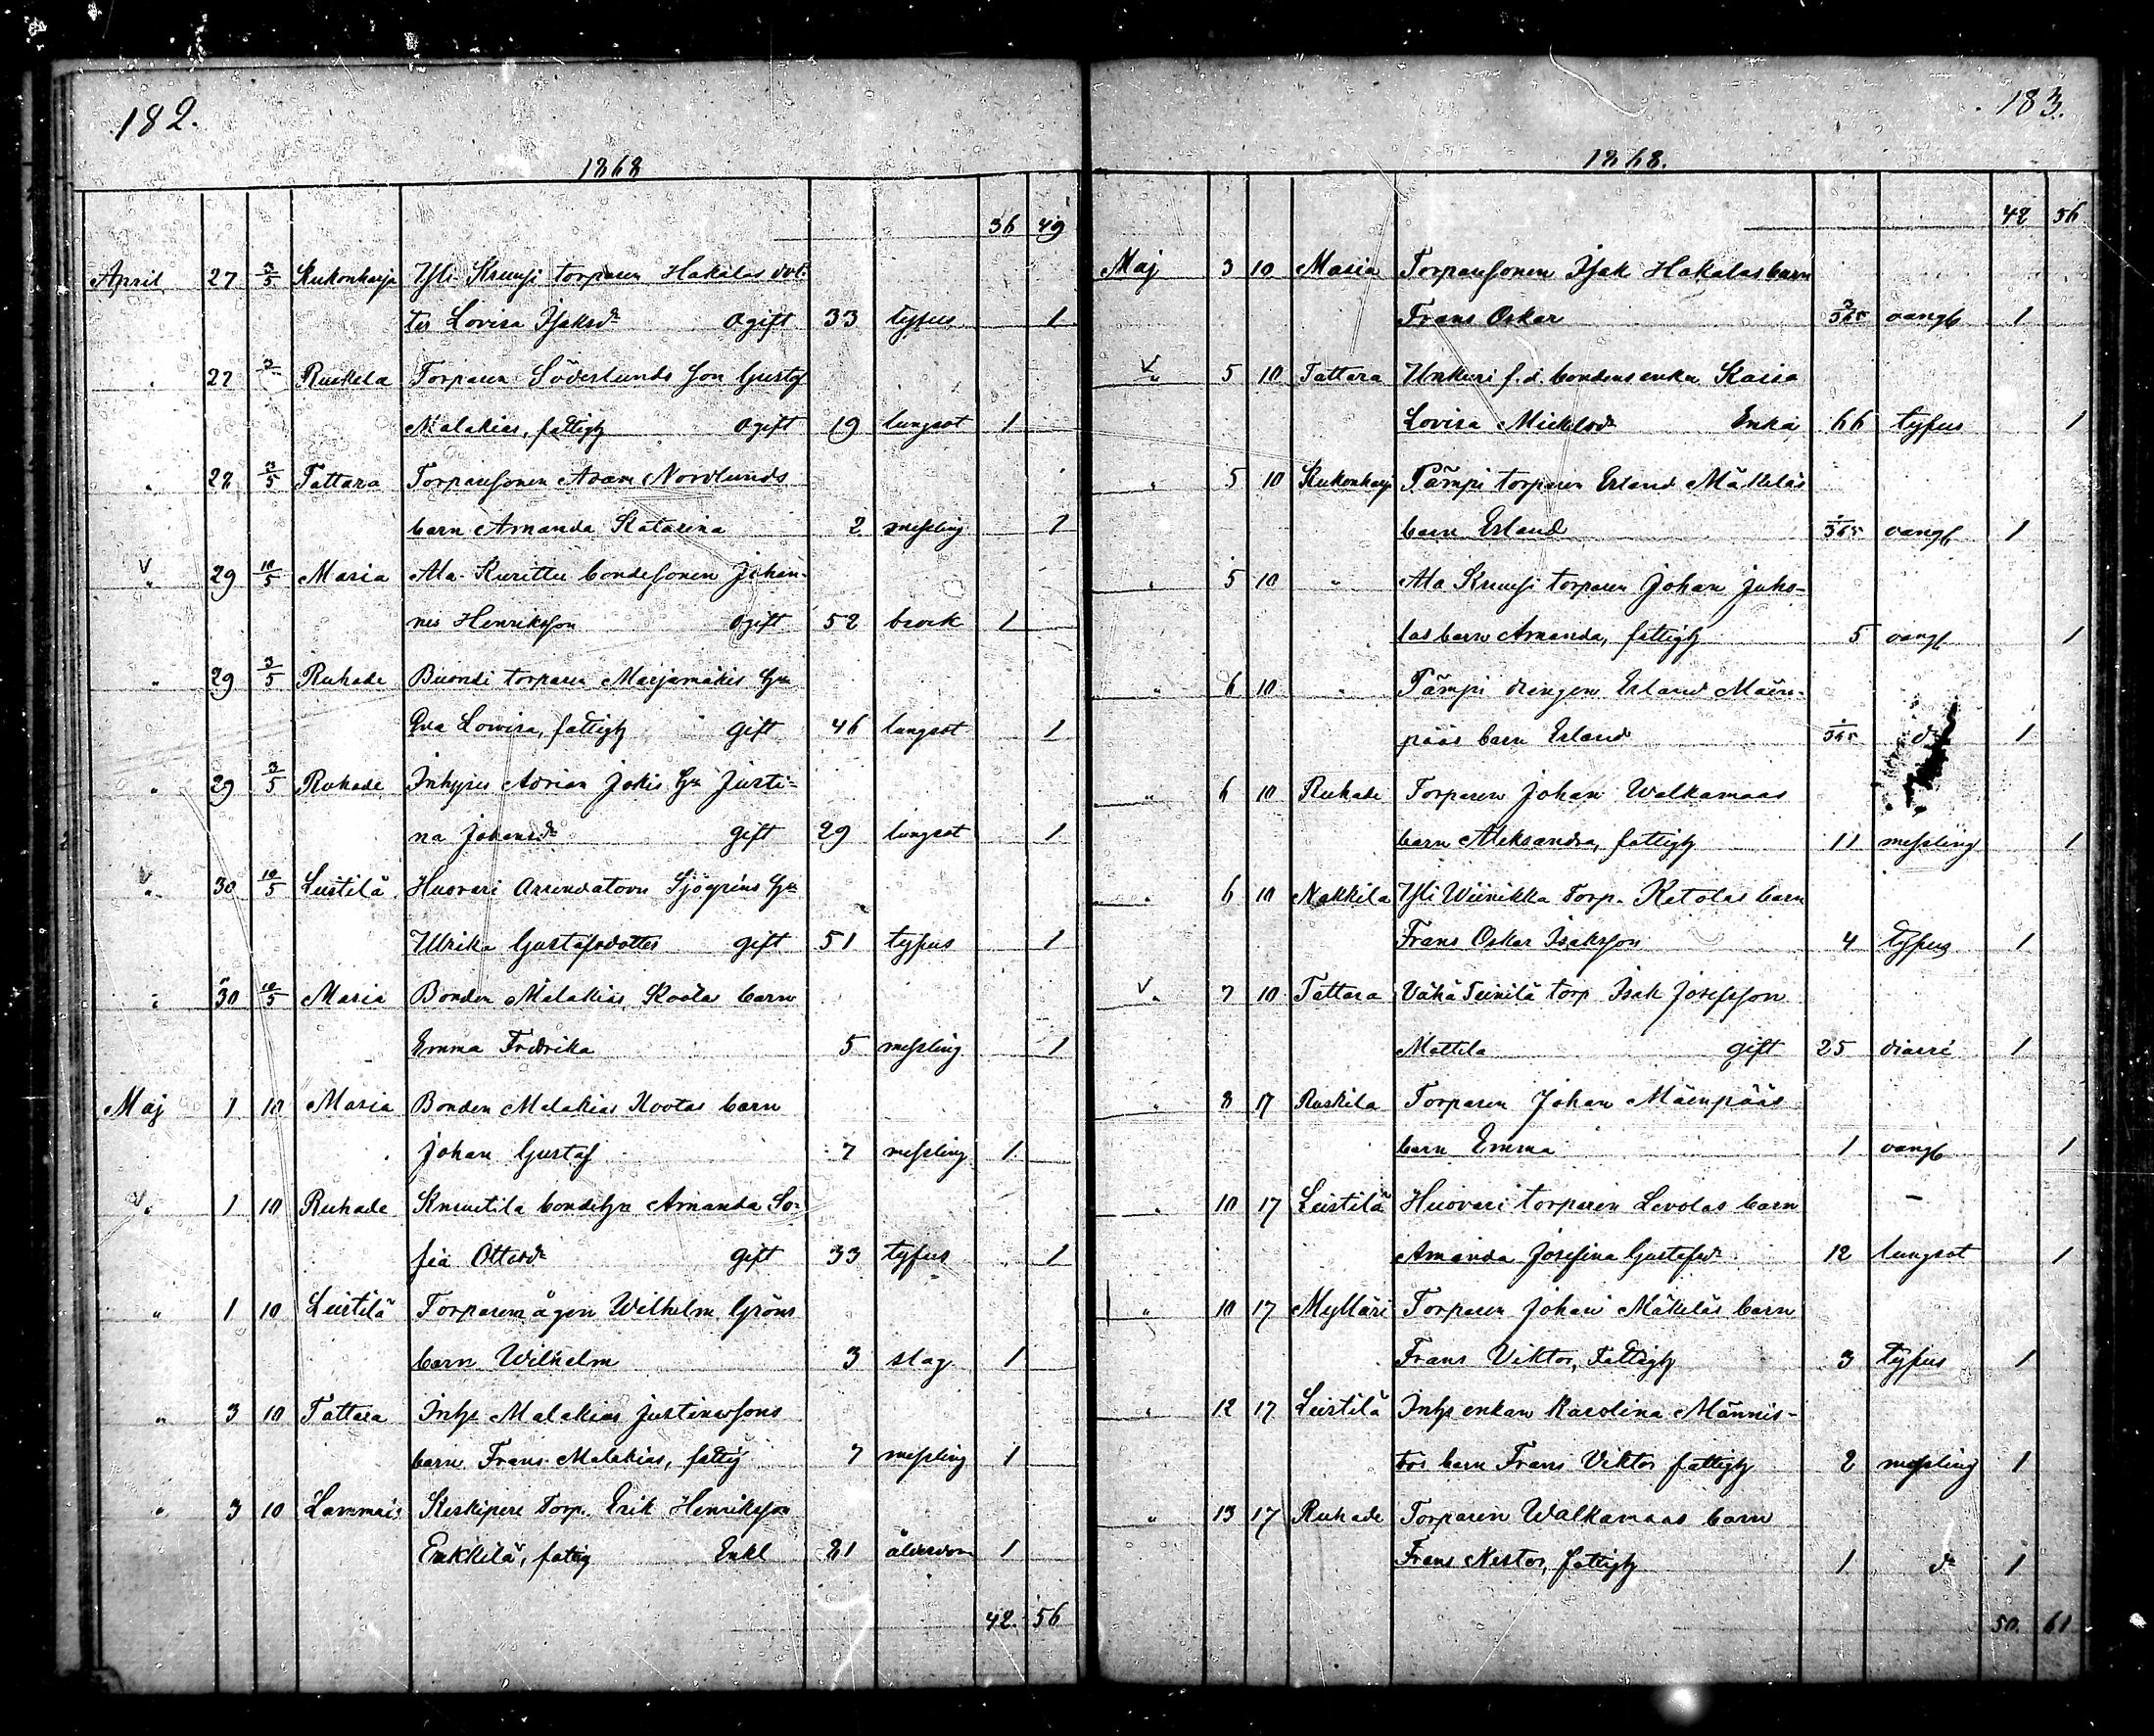 182.
1868
36 49
April 27 3/5 Kukonharja Yli Krunsi torparen Hakalas dot-
ter Lovisa Isaksdr Ogift 33 tyfus 1
" 27 3 Ruskela Torparen Söderlunds son Gustaf
Malakias, fattigh Ogift 19 lungsot 1
" 28 3/5 Tattara Torparesonen Adam Nordlunds
barn Amanda Katarina 2 messling 1
V " 29 10/5 Masia Ala-Kurittu bondesonen Johan-
nes Henriksson Ogift 52 brock 1
" 29 3/5 Ruhade torparen Marjamäkis Hu
Eva Lovisa, fattigh gift 46 lungsot 1
" 29 3/5 Ruhade Inhyses Adrian Jokis Hu Justi-
na Johansdr gift 29 lungsot 1
V " 30 10/5 Leistilä Huovari Arrendatorn Sjögréns Hu
Ulrika Gustafsdotter gift 51 tyfus 1
" 30 10/5 Masia Bonden Malakias Kootas barn
Emma Fredrika 5 messling 1
Maj 1 10 Masia Bonden Malakias Kootas barn
Johan Gustaf 7 messling 1
V " 1 10 Ruhade Knuutila bondehu Amanda So-
fia Ottosdr gift 33 tyfus 1
" 1 10 Leistilä Torparemågen Wilhelm Gröns
barn Wilhelm 3 slag 1
" 3 10 Tattara Inhys Malakias Justinussons
barn Frans Malakias, fattig 7 messling 1
" 3 10 Lammais Keskipere Torp. Erik Henriksson
Enkkilä, fattig Enkl 81 ålderdom 1
42. 56
183.
1868.
42 56
Maj 3 10 Masia Torparesonen Isak Hakalas barn
Frans Oskar 3/365 oangb 1
V " 5 10 Tattara Unkuri f.d. bondens enka Kaisa
Lovisa Mickelsdr Enka 66 tyfus 1
" 5 10 Kukonharj Pämpi torparen Erland Mäkeläs
barn Erland /365 oangb 1
" 5 10 " Ala Krunsi torparen Johan Juho-
las barn Amanda, fattigh 5 oangb 1
" 6 10 " Pämpi drengen Erland Mäen-
pääs barn Erland /365 dr 1
" 6 10 Ruhade Torparen Johan Walkamaas
barn Aleksandra, fattigh 11 messling 1
" 6 10 Nakkila Yli Wiinikka Torp. Ketolas barn
Frans Oskar Isaksson 4 Tyfus 1
V " 7 10 Tattara Vähä Teinilä torp Isak Josefsson
Mattila gift 25 diarré 1
" 8 17 Ruskila Torparen Johan Mäenpääs
barn Emma 1 oangb 1
" 10 17 Leistilä Huovari torparen Levolas barn
Amanda Josefina Gustafsdr 12 lungsot 1
" 10 17 Mylläri Torparen Johan Mäkeläs barn
Frans Viktor, Fattigh 3 tyfus 1
" 12 17 Leistilä Inhys enkan Karolina Männis-
tös barn Frans Viktor fattigh 2 messling 1
" 13 17 Ruhade Torparen Walkamaas barn
Frans Nestor, fattigh 1 dr 1
50. 61